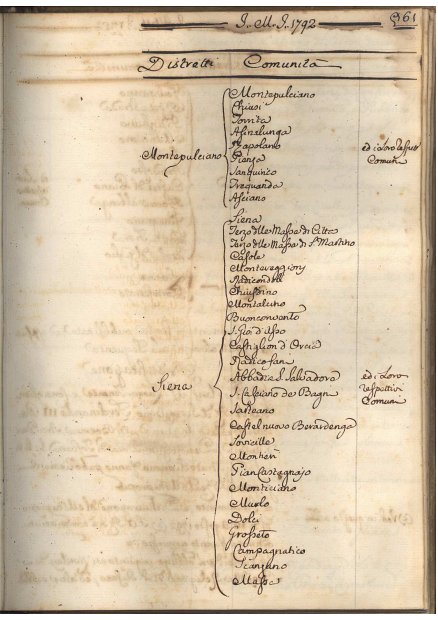 J. M. J. 1792
961
Distretti Comunità
Montepulciano
Montepulciano
Chiusi
Torrita
Asinalunga
Rapolano
Pienza
Sanquirico
Trequanda
Asciano
ed i Loro
Comuni
Siena
Siena
Terzo delle Masse di Città
Terzo delle Masse di S. Martino
Casole
Monteriggioni
Radicondoli
Chiusdino
Montalcino
Buonconvento
S. Gio: d'Asso
Castiglion d'Orcia
Radicofani
Abbadia S. Salvadore
S. Casciano de Bagni
Sarteano
Castelnuovo Berardenga
Sovicille
Montieri
Pian Castagnajo
Monticiano
Murlo
Dolci
Grosseto
Campagnatico
Scansano
Massa
ed i Loro
respettivi
Comuni